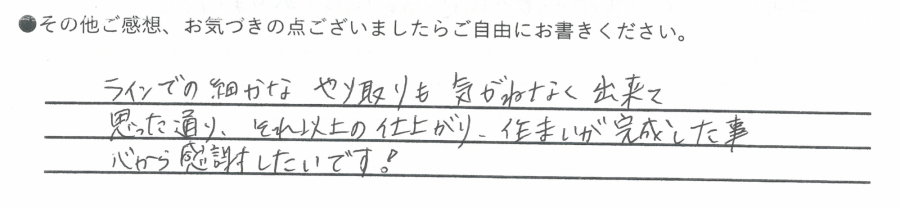 ●その他ご感想、お気づきの点ございましたらご自由にお書きください。
ラインでの細かな やり取りも 気がねなく 出来て
思った通り、それ以上の仕上がり、住まいが完成した事
心から感謝したいです!